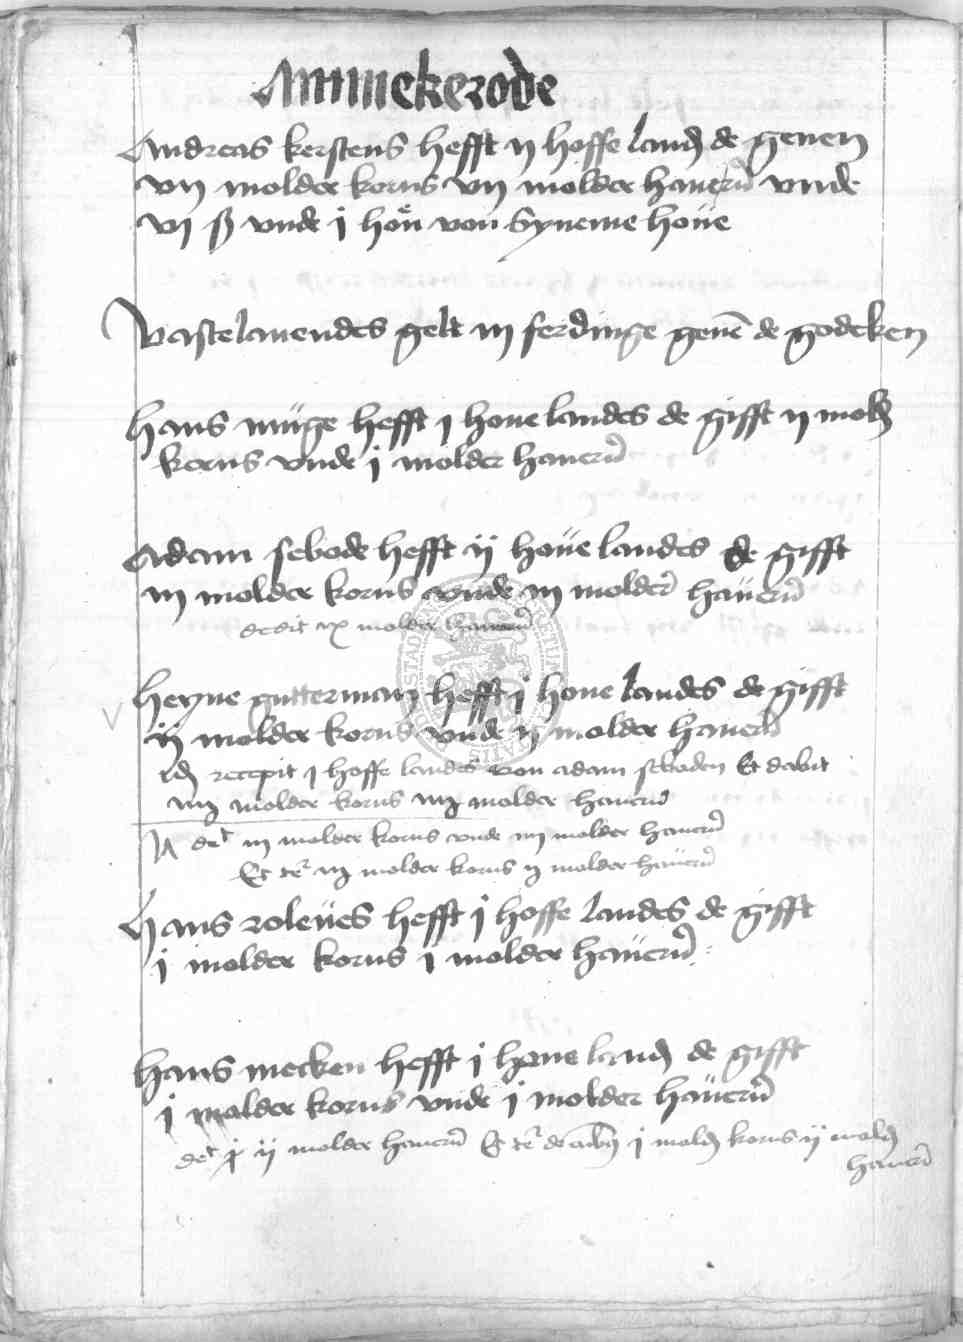 Ammekerode
Andreas kerstens hefft ij hoffe land de geuen
vij molder korns vij molder hauern vnde
vj ß vnde j hon von syneme houe
Vastelauendes gelt iij ferdinge geuē de godeken
Hans müge hefft j houe landes de gifft ij mold
korns vnde j molder hauern
Adam sebode hefft ij houe landes de gifft
iij molder korns vnde iij molder hauern
dedit ix molder hauern
Heyne gutterman hefft j houe landes de gifft
ij molder korns vnde ij molder hauern
recepit j hoffe landes von adam seboden Et dabit
iiij molder korns iiij molder hauern
iij molder korns vnde iiij molder hauern
Et molder korns ij molder hauern
Hans roleues hefft j hoffe landes de gifft
j molder korns j molder hauern
Hans mecken hefft j houe land de gifft
j molder korns vnde j molder hauern
ij molder hauern Et j mold korns ij mold
hauern